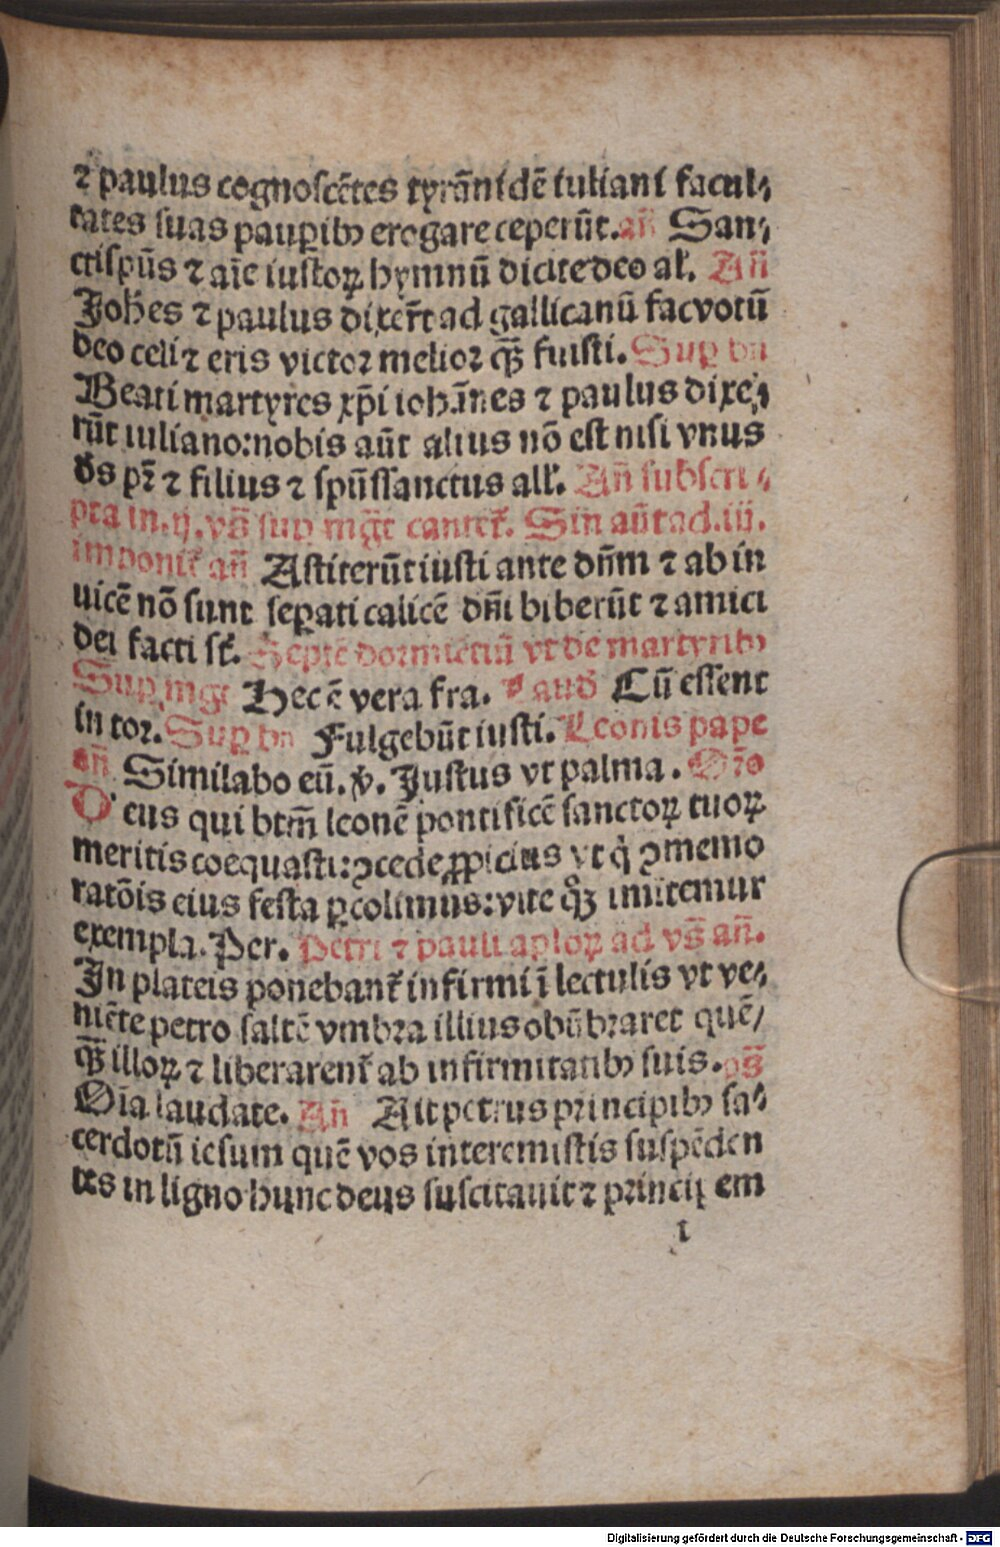 ⁊ paulus cognoscētes tyrānidē iuliani facul⸗
tates suas pauꝑibꝫ erogare ceperūt. añ San⸗
ctispūs ⁊ aīe iustoꝝ hymnū dicite deo al'. Añ
Joh̄es ⁊ paulus dixer̄t ad gallicanū fac votū
deo celi ⁊ eris victor melior qꝫ̄ fuisti. Suꝑ bn̄
Beati martyres xp̄i ioh̄ānes ⁊ paulus dixe⸗
rūt iuliano: nobis aūt alius nō est nisi vnus
ds̄ pr̄ ⁊ filius ⁊ spūssanctus all'. Añ subscri⸗
pta in.ij. vs̄ suꝑ mgt̄ cantet᷑. Sin aūt ad.iij.
imponit᷑ añ Astiterūt iusti ante dn̄m ⁊ ab in
uicē nō sunt seꝑati calicē dn̄i biberūt ⁊ amici
dei facti st̄. Septē dormiētiū vt de martyribꝫ
Suꝑ mgt̄ Hec ē vera fra. V̓ aud̄ Cū essent
in tor. Suꝑ bn̄ Fulgebūt iusti. Leonis pape
añ Similabo eū. ℣. Justus vt palma. Or̄o
Deus qui btm̄ leonē pontificē sanctoꝝ tuoꝝ
meritis coequasti: ꝯcede ꝓpicius vt q̇ ꝯmemo
ratōis eius festa ꝑcolimus: vite qꝫ̊ imitemur
exempla. Per. Petri ⁊ pauli aploꝝ ad vs̄ añ.
In plateis ponebant᷑ infirmi ī lectulis vt ve⸗
niēte petro saltē vmbra illius obūbraret quē/
qꝫ̄ illoꝝ ⁊ liberarent᷑ ab infirmitatibꝫ suis. ps̄
Oīa laudate. Añ Ait petrus principibꝫ sa⸗
cerdotū iesum quē vos interemistis suspēden
tes in ligno hunc deus suscitauit ⁊ principem
i
Digitalisierung gefördert durch die Deutsche Forschungsgemeinschaft - DFG